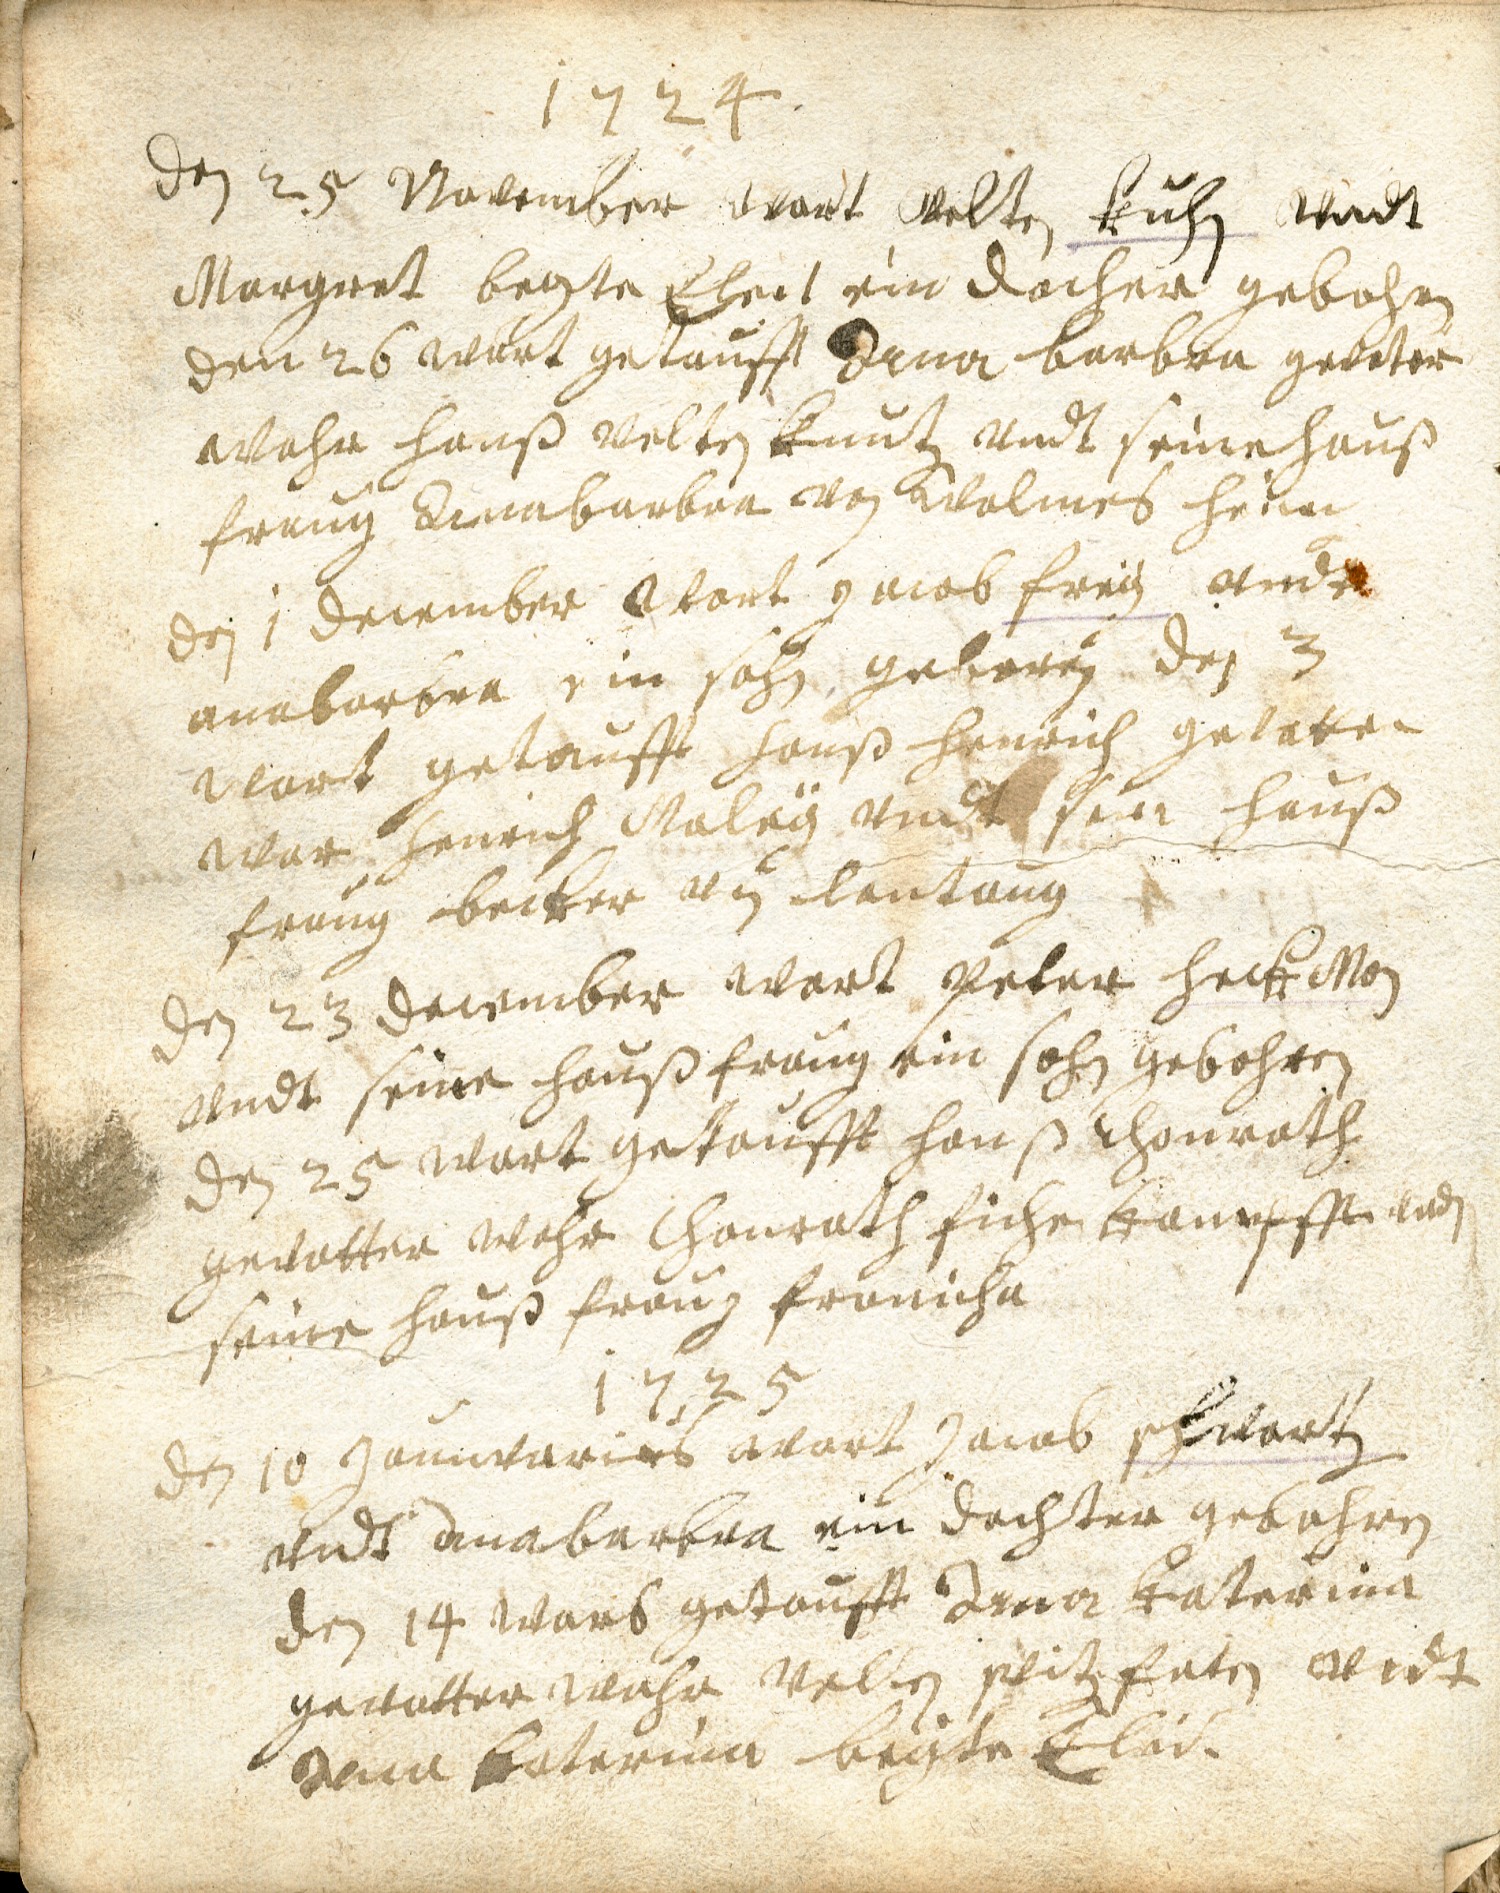 1724.
den 25 November wart velten kuhn vndt
Margret beyte Eheit ein docher gebohn
den 26 wart getaufft Anna barbra gevater
wahr hanß velten vndt seine hauß
fraug Annabarbra von Wolmes heim
den 1 december Wart Jacob freÿ vndt
anabarbra ein sohn geboren den 3
wart getaufft hanß henrich gevatter
war henrich Maleÿ vndt sein hauß
fraug becker von lantaug
den 23 december wart Peter heckMon
vndt seine haußfraug ein sohn gebohren
den 25 wart getaufft hanß Chonrath
gevatter wahr Chonrath vnd
seine hauß fraug fronicha
1725
den 10 Januvaries wart Jacob schwartz
vndt anabarbra ein dochter gebohren
den 14 wart getaufft Anna katerina
gevatter wahr Velten vndt
Anna katerina beyte